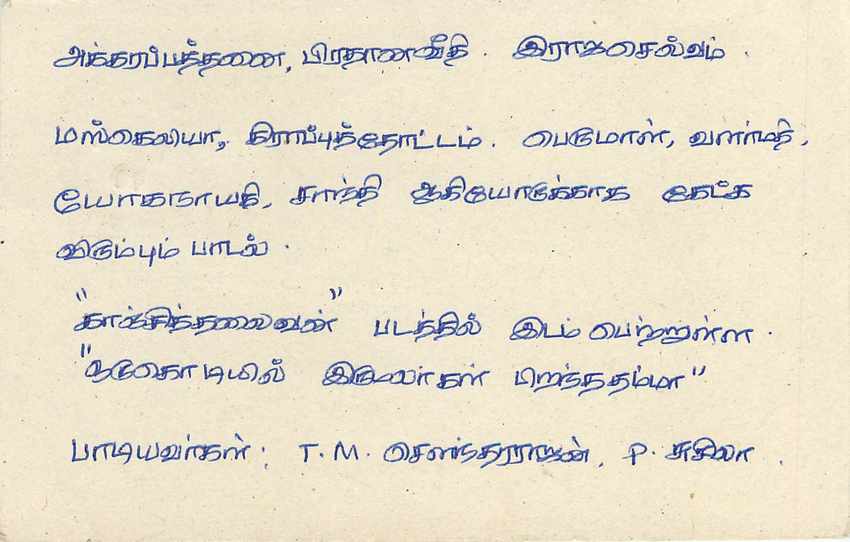 அக்கரப்பத்தனை, பிரதானவீதி. இராஜசெல்வம்.
மஸ்கெலியா, கிராப்புத்தோட்டம். பெருமாள், வளர்மதி,
யோகநாயகி, சாந்தி ஆகியோருக்காக கேட்க
விரும்பும் பாடல்.
"காஞ்சித்தலைவன்" படத்தில் இடம் பெற்றுள்ள.
"ஒருகொடியில் இருமலர்கள் பிறந்ததம்மா"
பாடியவர்கள்: T.M. சௌந்தரராஜன், P. சுசிலா.